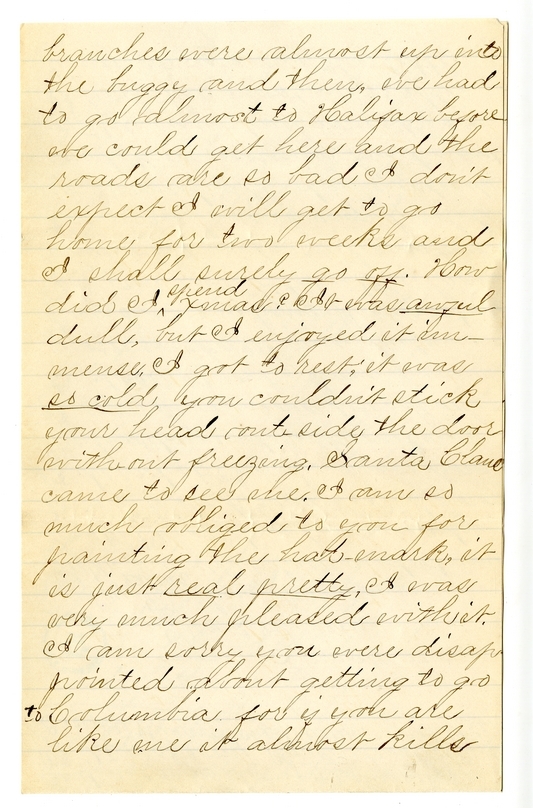 branches were almost up into
the buggy and then, we had
to go almost to Halifax before
we could get here and the
roads are so bad I don't
expect I will get to go
home for two weeks and
I shall surely go off. How
did I spend Xmas? It was awful
dull, but I enjoyed it im-
mense. I got to rest, it was
so cold you couldn't stick
your head out-side the door
without freezing. Santa Claus
came to see me. I am so
much obliged to you for
painting the hat-mark, it
is just real pretty, I was
very much pleased with it.
I am sorry you were disap
pointed about getting to go
to Columbia for if you are
like me it almost kills